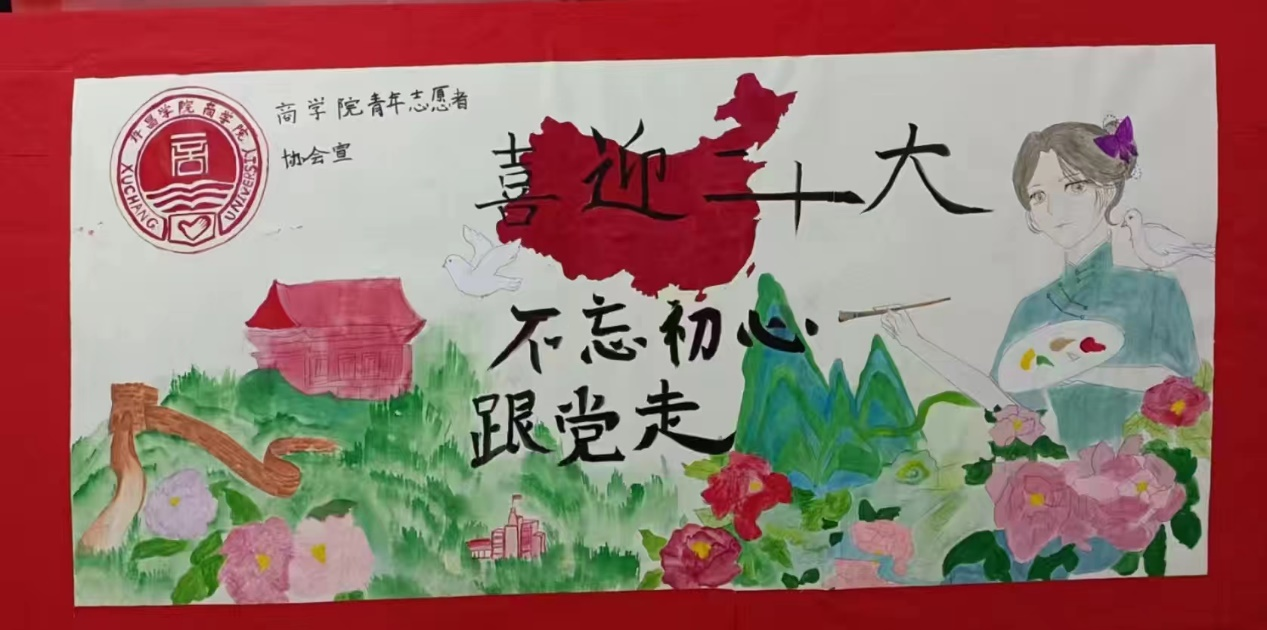 许昌学院商学院
商
XUCHANG UNIVERSITY
商学院青年志愿者
协会宣
喜迎二十大
不忘初心
跟党走